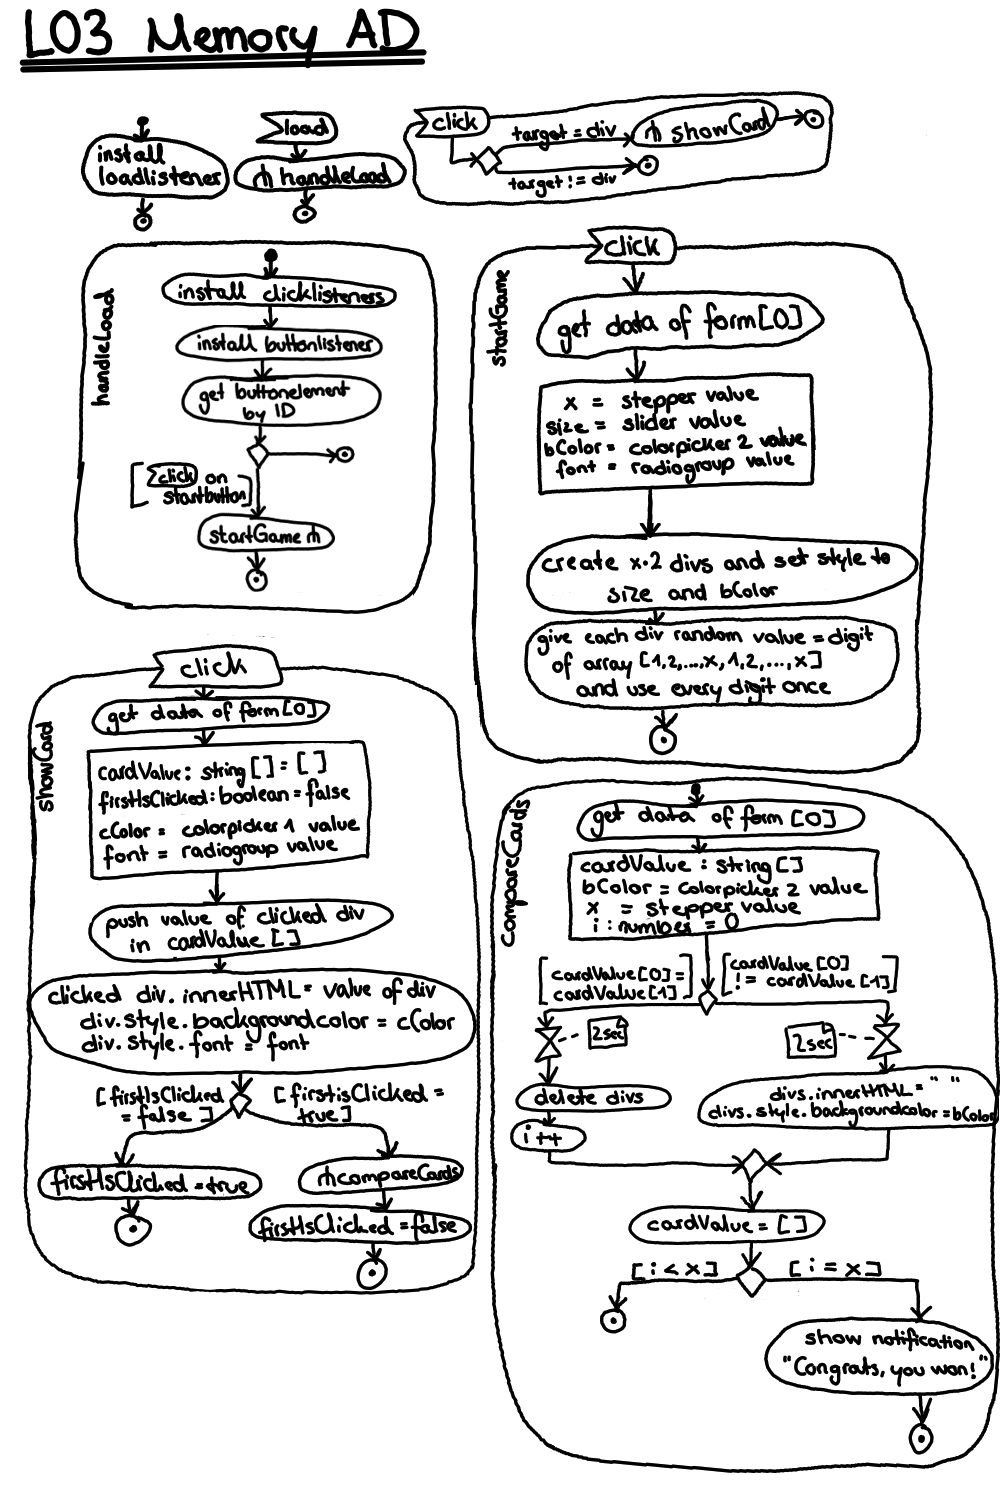 L03 Memory AD
install
loadlistener
load
handleLoad
click
target = div
showCard
target != div
handleLoad
install clicklisteners
install buttonlistener
get buttonelement
by ID
[click on
startbutton]
startGame
startGame
click
get data of form[0]
x = stepper value
size = slider value
bColor = colorpicker 2 value
font = radiogroup value
create x·2 divs and set style to
size and bColor
give each div random value = digit
of array [1,2,...,x,1,2,...,x]
and use every digit once
showCard
click
get data of form[0]
cardValue: string[] = []
firstIsClicked: boolean = false
cColor = colorpicker 1 value
font = radiogroup value
push value of clicked div
in cardValue []
clicked div.innerHTML = value of div
div.style.backgroundcolor = cColor
div.style.font = font
[firstIsClicked
= false]
[firstisClicked =
true]
firstIsClicked = true
compareCards
firstIsClicked = false
compareCards
get data of form [0]
cardValue : string[]
bColor = colorpicker 2 value
x = stepper value
i : number = 0
[cardValue[0] =
cardValue[1]]
[cardValue[0]
!= cardValue[1]]
2sec
2sec
delete divs
i++
divs.innerHTML = " "
divs.style.backgroundcolor = bColor
cardValue = []
[i < x]
[i = x]
show notification
"Congrats, you won!"